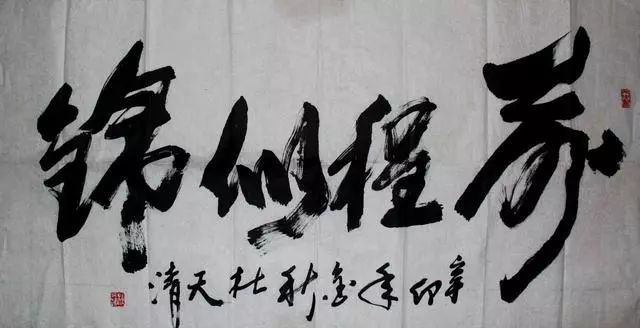 前程似锦
辛卯年金秋杜天清